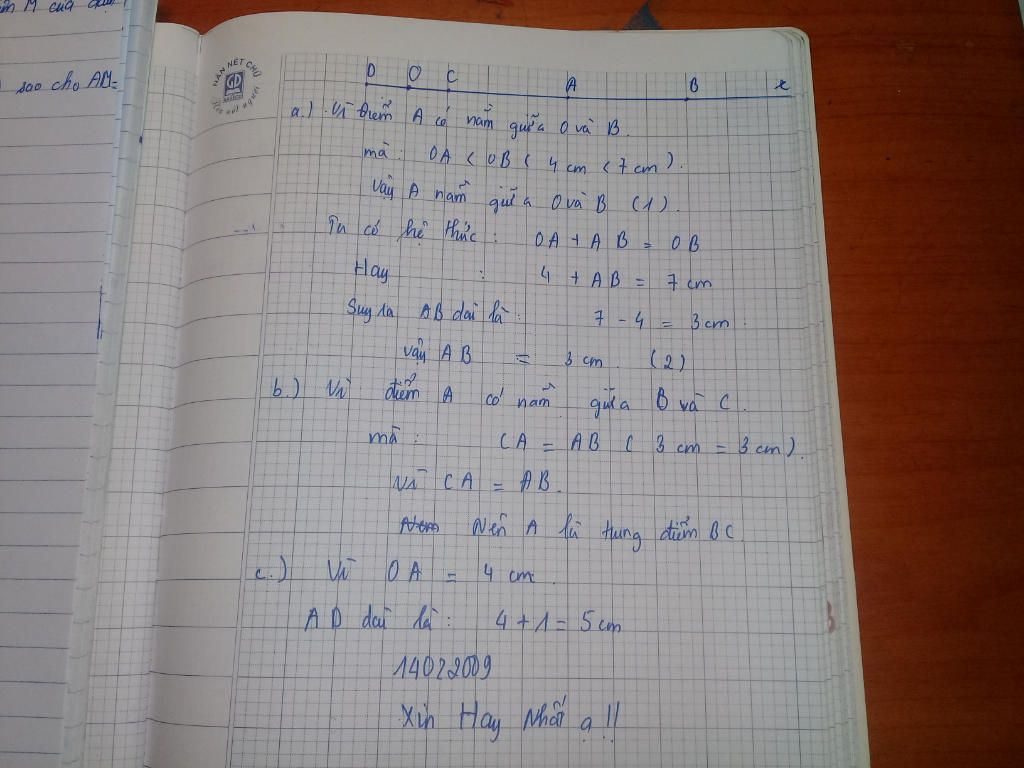 sao cho AM=
NẮN NÉT CHỮ
D O C A B x
a.) Vì điểm A có nằm giữa O và B.
mà: OA < OB ( 4 cm < 7 cm ).
Vậy A nằm giữa O và B (1).
Ta có hệ thức: OA + AB = OB
Hay : 4 + AB = 7 cm
Suy ra AB dài là: 7 - 4 = 3 cm.
vậy AB = 3 cm. (2)
b.) Vì điểm A có nằm giữa B và C.
mà: CA = AB ( 3 cm = 3 cm ).
Vì CA = AB.
Nên A là trung điểm BC.
c.) Vì OA = 4 cm.
AD dài là: 4 + 1 = 5 cm
14022009
Xin Hay Nhất ạ !!